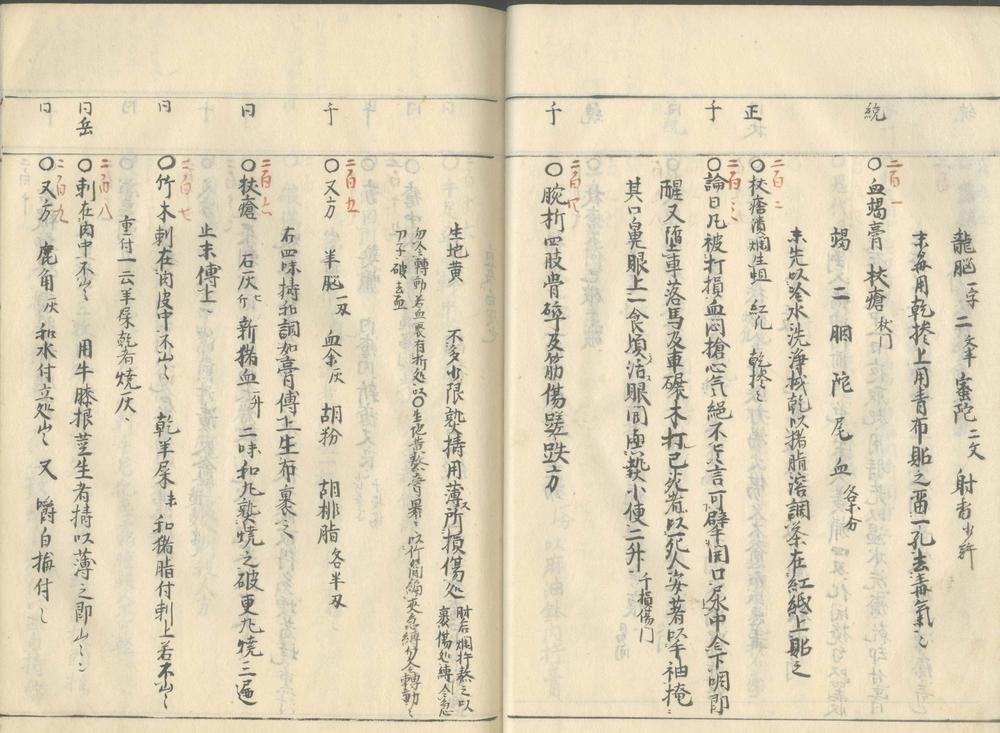 龍脳一字 二文半 蜜陀二文 射香少許
末毎用乾摻上用青布貼之畱一孔去毒氣
統
二百一
〇血竭膏 杖瘡杖門
竭二 胭 陀 尾 血各半分
末先以冷水洗浄拭乾以猪脂溶調茶在紅紙上貼之
正
二百二
〇杖瘡潰爛生蛆 紅九 乾摻
千
二百三
〇論曰凡被打損血悶搶心气絶不能言可擘開口尿中令下咽即
醒又墮車落馬及車碾木打已死者以死人安著以手袖掩
其口鼻眼上一食頃活眼開 熱小便二升千損傷門
千
二百四
〇腕折四肢骨碎及筋傷蹉跌方
生地黄 不多少限熟擣用薄所損傷処
肘后爛杵熬之以
裹傷処縛令急
勿令轉動若血裹有折処以刀子破去血
千
二百五
〇又方 羊脳一刄 血余灰 胡粉 胡桃脂各半刄
右四味擣和調如膏傅上生布裹之
同
二百六
〇杖瘡 石灰 新猪血一升 二味和丸熟燒之破更丸燒三遍
止末傅上
同
二百七
〇竹木刺在肉皮中不出 乾羊屎末 和猪脂付刺上若不出
重付一云羊屎乾者燒灰
同岳
二百八
〇刺在肉中不出 用牛膝根莖生者擣以薄之即出
同
二百九
〇又方 鹿角灰 和水付立処出 又 嚼白梅付